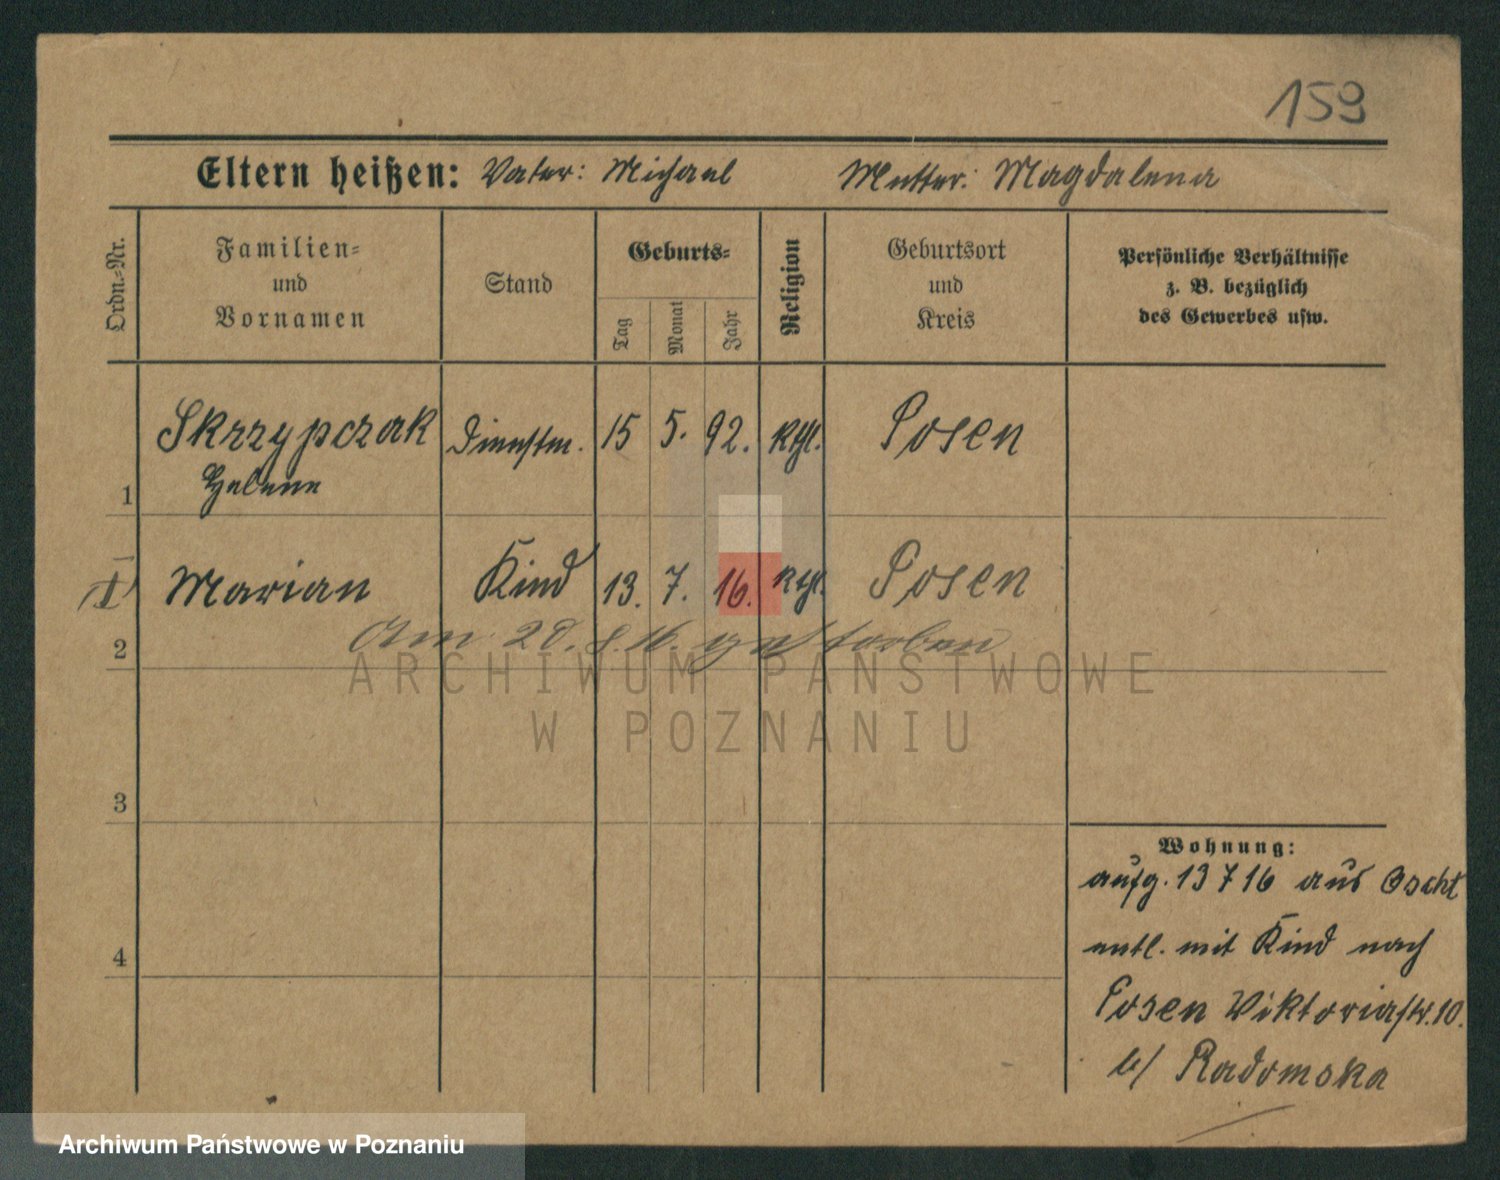 159
Eltern heißen: Vater: Michael Mutter: Magdalena
Ordn.-Nr.
Familien- und Vornamen
Stand
Geburts-
Tag
Monat
Jahr
Religion
Geburtsort und Kreis
Persönliche Verhältnisse
z. B. bezüglich
des Gewerbes usw.
Skrzypczak Dienstm. 15 5. 92. kthl. Posen
Helene
1
Marian Kind 13. 7. 16. kthl. Posen
Am 28. 8. 16. gestorben
2
ARCHIWUM PAŃSTWOWE
W POZNANIU
3
Wohnung:
aufg. 13 7 16 aus
entl. mit Kind nach
4
Posen Viktoriastr. 10.
b/ Radomska
Archiwum Państwowe w Poznaniu